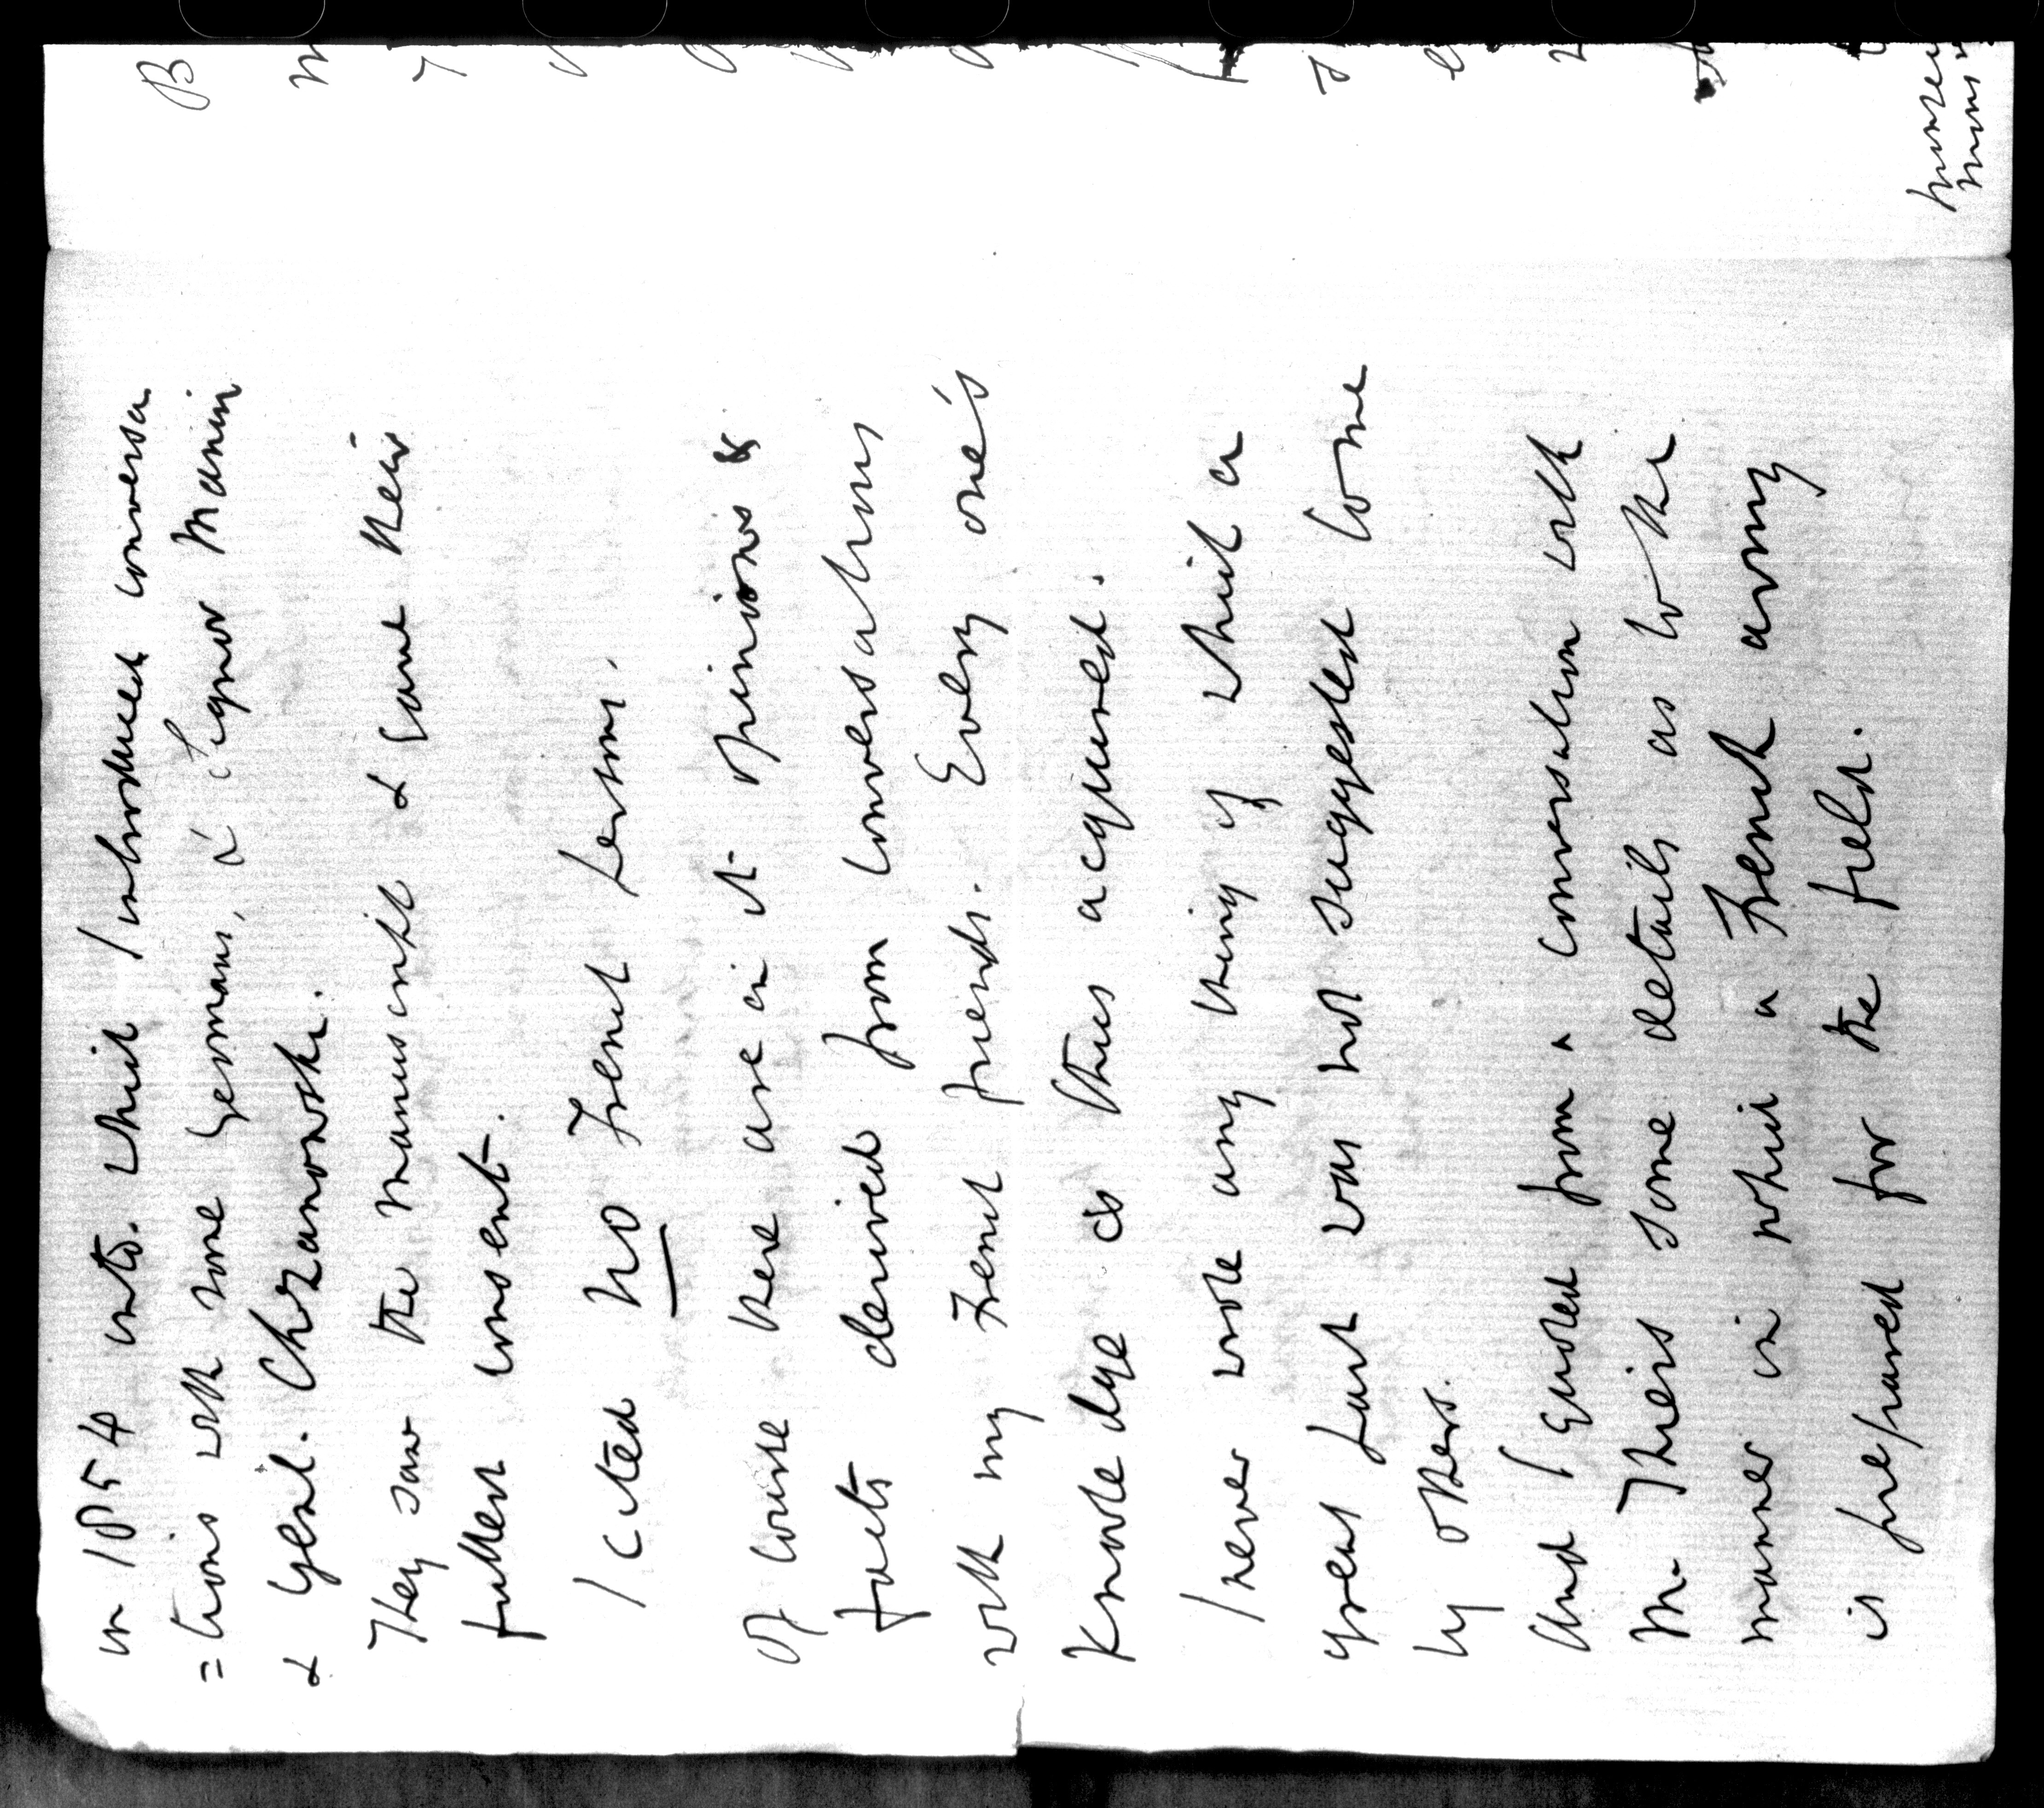 in 1854 into which I introduced conversa
=tions with some Germans, a Signor Manin
& Genl. Chrzanowski.
They saw the manuscript & gave their
fullest consent.
I cited no French person.
Of course there are in it opinions &
facts derived from conversations
with my French friends. Every one's
Knowledge is thus acquired.
I never wrote any thing of which a
great part was not suggested to me
by others.
And I quoted from a conversation with
M. Thiers some details as to the
manner in which a French army
is prepared for the field.